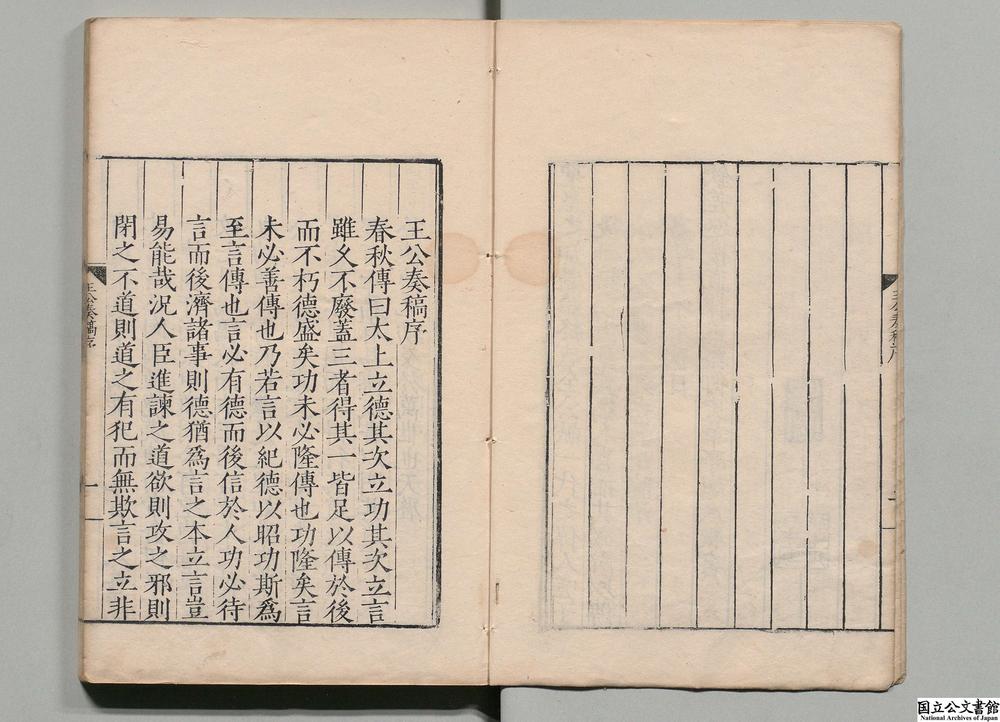 王公奏稿序
春秋傳曰太上立德其次立功其次立言
雖久不廢蓋三者得其一皆足以傳於後
而不朽德盛矣功未必隆傳也功隆矣言
未必善傳也乃若言以紀德以昭功斯爲
至言傳也言必有德而後信於人功必待
言而後濟諸事則德猶爲言之本立言豈
易能哉況人臣進諫之道欲則攻之邪則
閉之不道則道之有犯而無欺言之立非
王公奏稿序
一
王公奏稿序
国立公文書館
National Archives of Japan